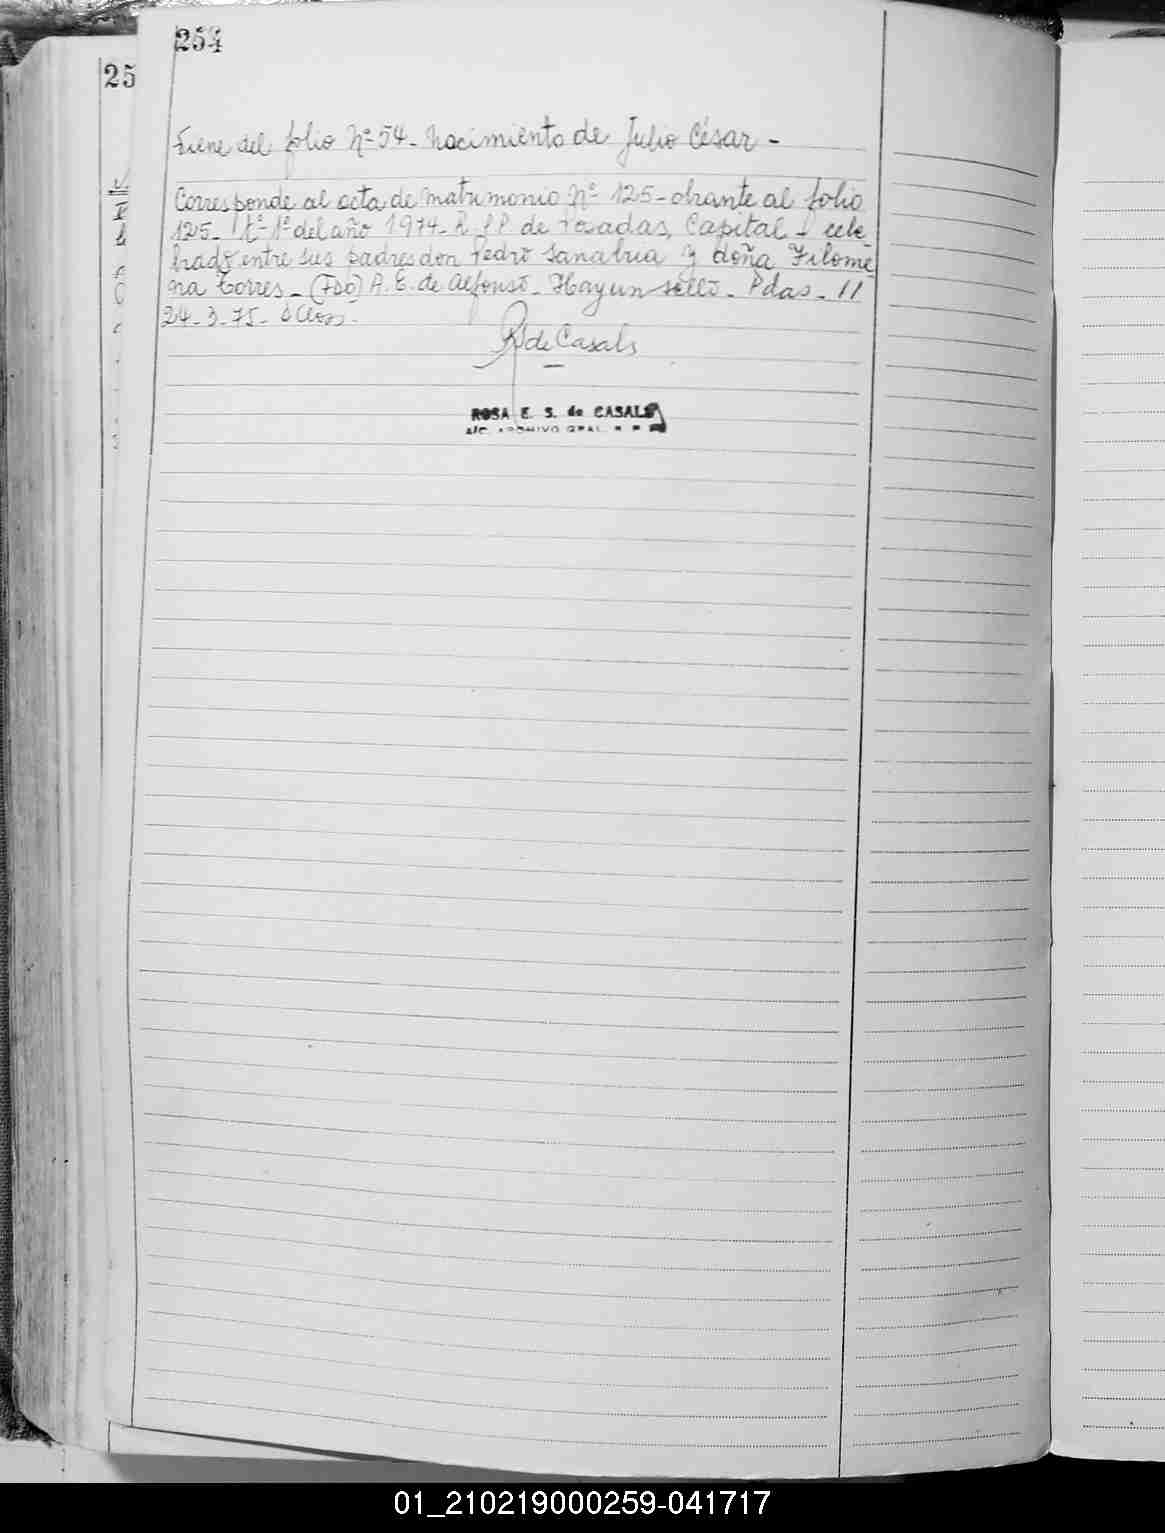 254
25
Viene del folio Nº 54 - Nacimiento de Julio César -
Corresponde al acta de matrimonio Nº 125 - obrante al folio
125 - Tº 1º del año 1974 - R. PP. de Posadas, Capital - cele-
brado entre sus padres don Pedro Sanabria y doña Filome
na Torres - (Fdo) A. E. de Alfonso - Hay un sello - Pdas - 11
24-3-75 -
R S de Casals
ROSA E. S. de CASALS
A/C. ARCHIVO GRAL. R. P.
01_210219000259-041717